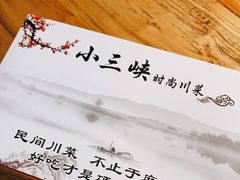 小三峡时尚川菜
民间川菜 不止于麻
好吃才是硬